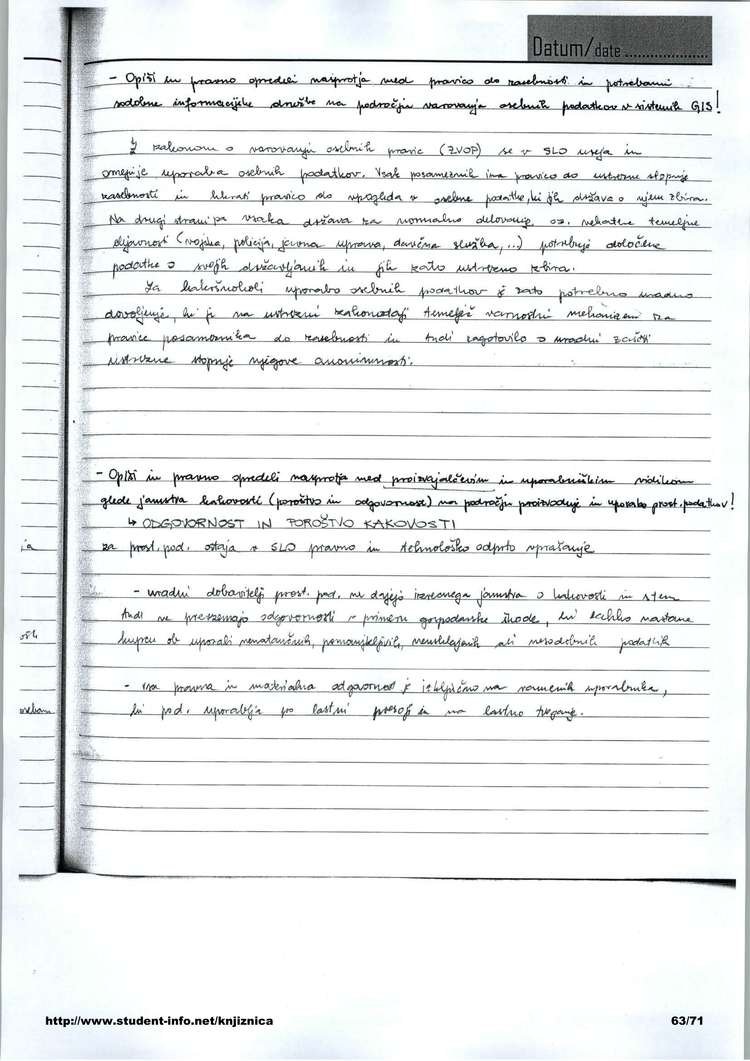 Datum/date ....................
- Opiši in pravno opredeli nasprotja med pravico do zasebnosti in potrebami
sodobne informacijske družbe na področju varovanja osebnih podatkov v sistemih GIS!
Z zakonom o varovanju osebnih pravic (ZVOP) se v SLO ureja in
omejuje uporaba osebnih podatkov. Vsak posameznik ima pravico do ustrezne stopnje
zasebnosti in hkrati pravico do vpogleda v osebne podatke, ki jih država o njem zbira.
Na drugi strani pa vsaka država za normalno delovanje oz. nekatere temeljne
dejavnosti (vojska, policija, javna uprava, davčna služba, ...) potrebuje določene
podatke o svojih državljanih in jih zato ustrezno zbira.
Za kakršnokoli uporabo osebnih podatkov je zato potrebno uradno
dovoljenje, ki je na ustrezni zakonodaji temelječ varnostni mehanizem za
pravice posameznika do zasebnosti in tudi zagotovilo o uradni zaščiti
ustrezne stopnje njegove anonimnosti.
- Opiši in pravno opredeli nasprotja med proizvajalčevim in uporabniškim vidikom
glede jamstva kakovosti (poroštvo in odgovornost) na področju proizvodnje in uporabe prost. podatkov!
↳ ODGOVORNOST IN POROŠTVO KAKOVOSTI
za prost. pod. ostaja v SLO pravno in tehnološko odprto vprašanje
ia
- uradni dobavitelji prost. pod. ne dajejo izrecnega jamstva o kakovosti in s tem
tudi ne prevzemajo odgovornosti v primeru gospodarske škode, ki lahko nastane
kupcu ob uporabi nenatančnih, pomanjkljivih, neusklajenih ali nesodobnih podatkih
- vsa pravna in materialna odgovornost je izključno na ramenih uporabnika,
ki pod. uporablja po lastni presoji in na lastno tveganje.
http://www.student-info.net/knjiznica
63/71